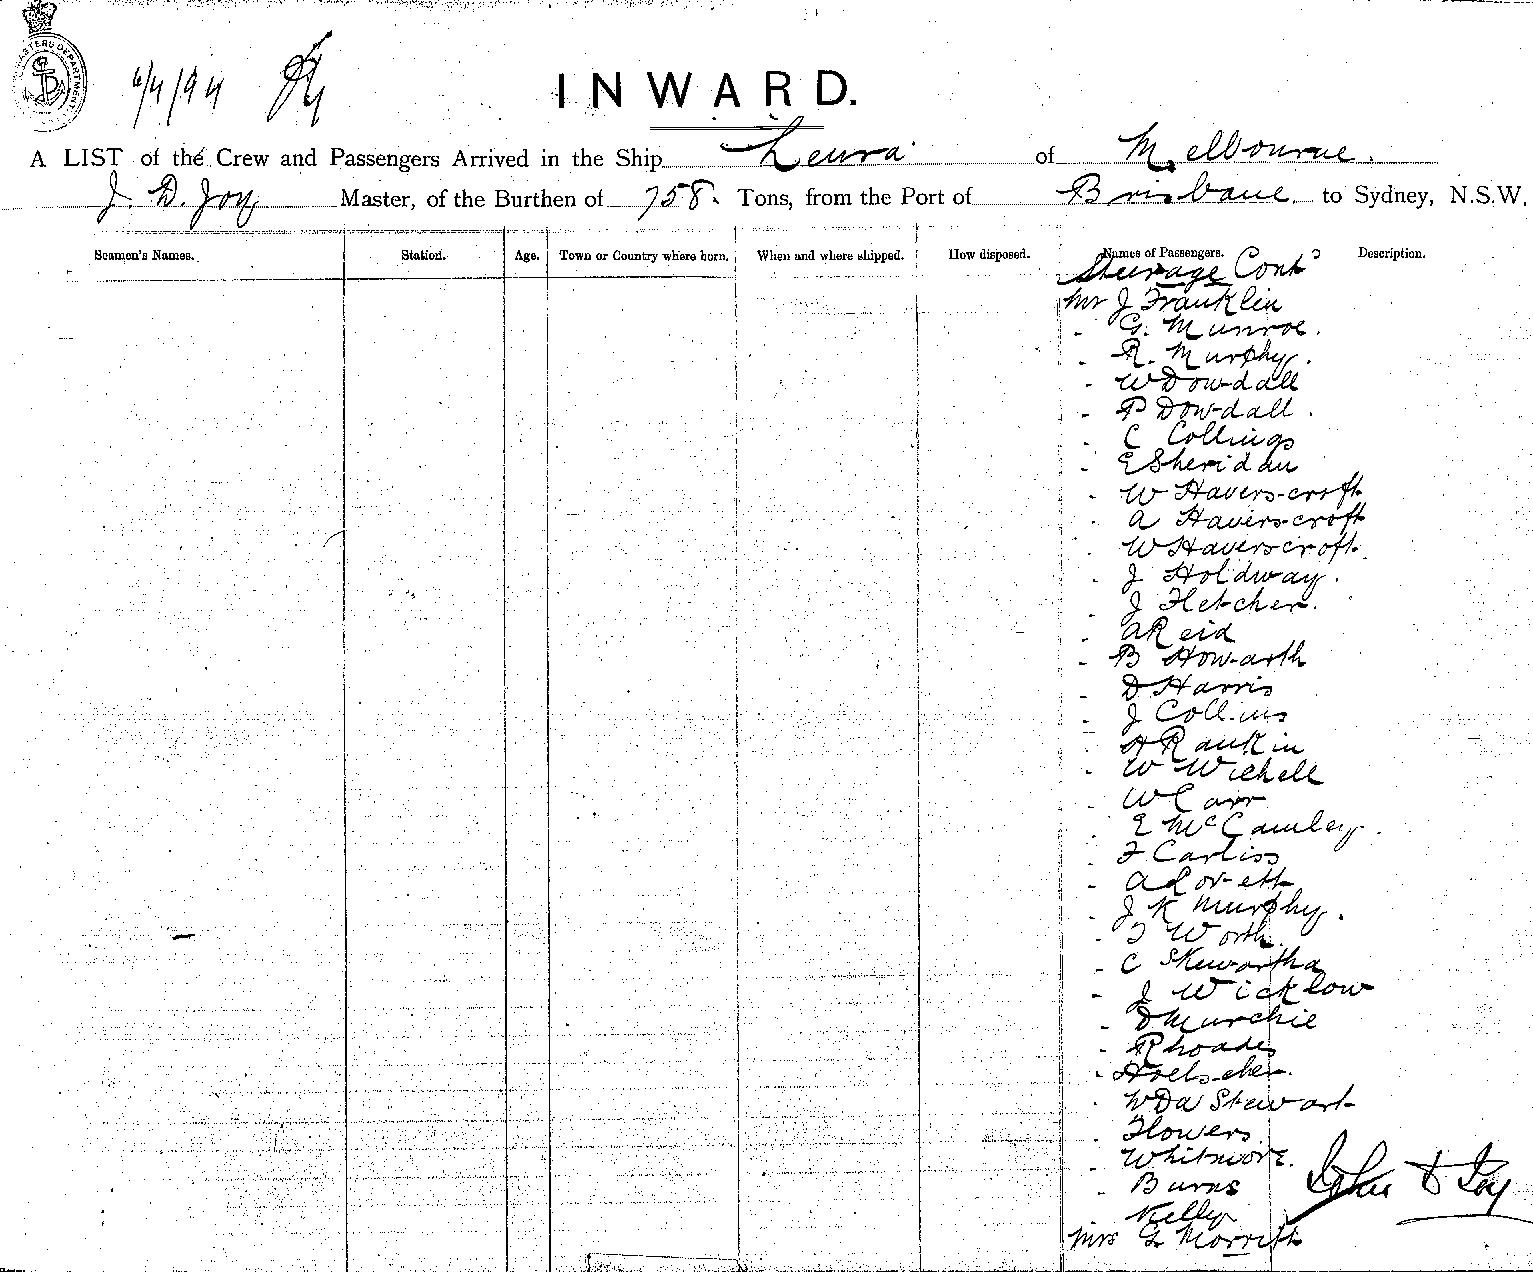 6/4/94
INWARD.
A LIST of the Crew and Passengers Arrived in the Ship Leura of Melbourne.
J. D. Joy Master, of the Burthen of 758. Tons, from the Port of Brisbane to Sydney, N.S.W.
Seamen's Names. Station. Age. Town or Country where born. When and where shipped. How disposed. Names of Passengers. Description.
Steerage Contd
Mr J Franklin
" G. Munroe.
" R. Murphy.
" W Dowdall
" P Dowdall.
" C Collings
" E Sheridan
" W Haverscroft
" A Haverscroft
" W Haverscroft.
" J Holdway.
" J Fletcher.
" A Reid
" B Howarth
" D Harris
" J Collins
" A Rankin
" W Wichell
" W Carr
" E McCamley.
" F Carliss
" A Lovett
" J K Murphy.
" T Worth.
" C Skewartha
" J Wicklow
" D Murchie
" Rhoades
" Hoelscher.
" W Da Stewart
" Flowers.
" Whitmore.
" Burns
Kelly
Mrs G Morrith
John D Joy